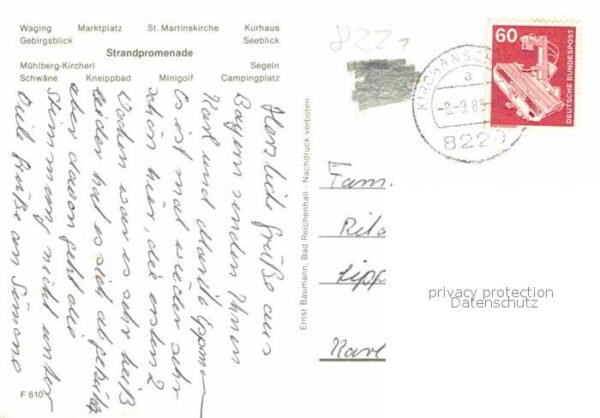 Waging Marktplatz St. Martinskirche Kurhaus
Gebirgsblick Seeblick
Strandpromenade
Mühlberg-Kircherl Segeln
Schwäne Kneippbad Minigolf Campingplatz
8221
60
DEUTSCHE BUNDESPOST
KIRCHANSCH
a
-8.-9.83
822
Herzliche Grüße aus
Bayern senden Ihnen
Karl und
Es ist mal wieder sehr
schön hier, die ersten 2
Wochen war es sehr heiß
leider hat es sich abgekühlt
aber davon geht die
Stimmung nicht unter
Viele Grüße an Simone
Ernst Baumann, Bad Reichenhall - Nachdruck verboten
Fam.
Rita
Lipp
Karl
privacy protection
Datenschutz
F 610